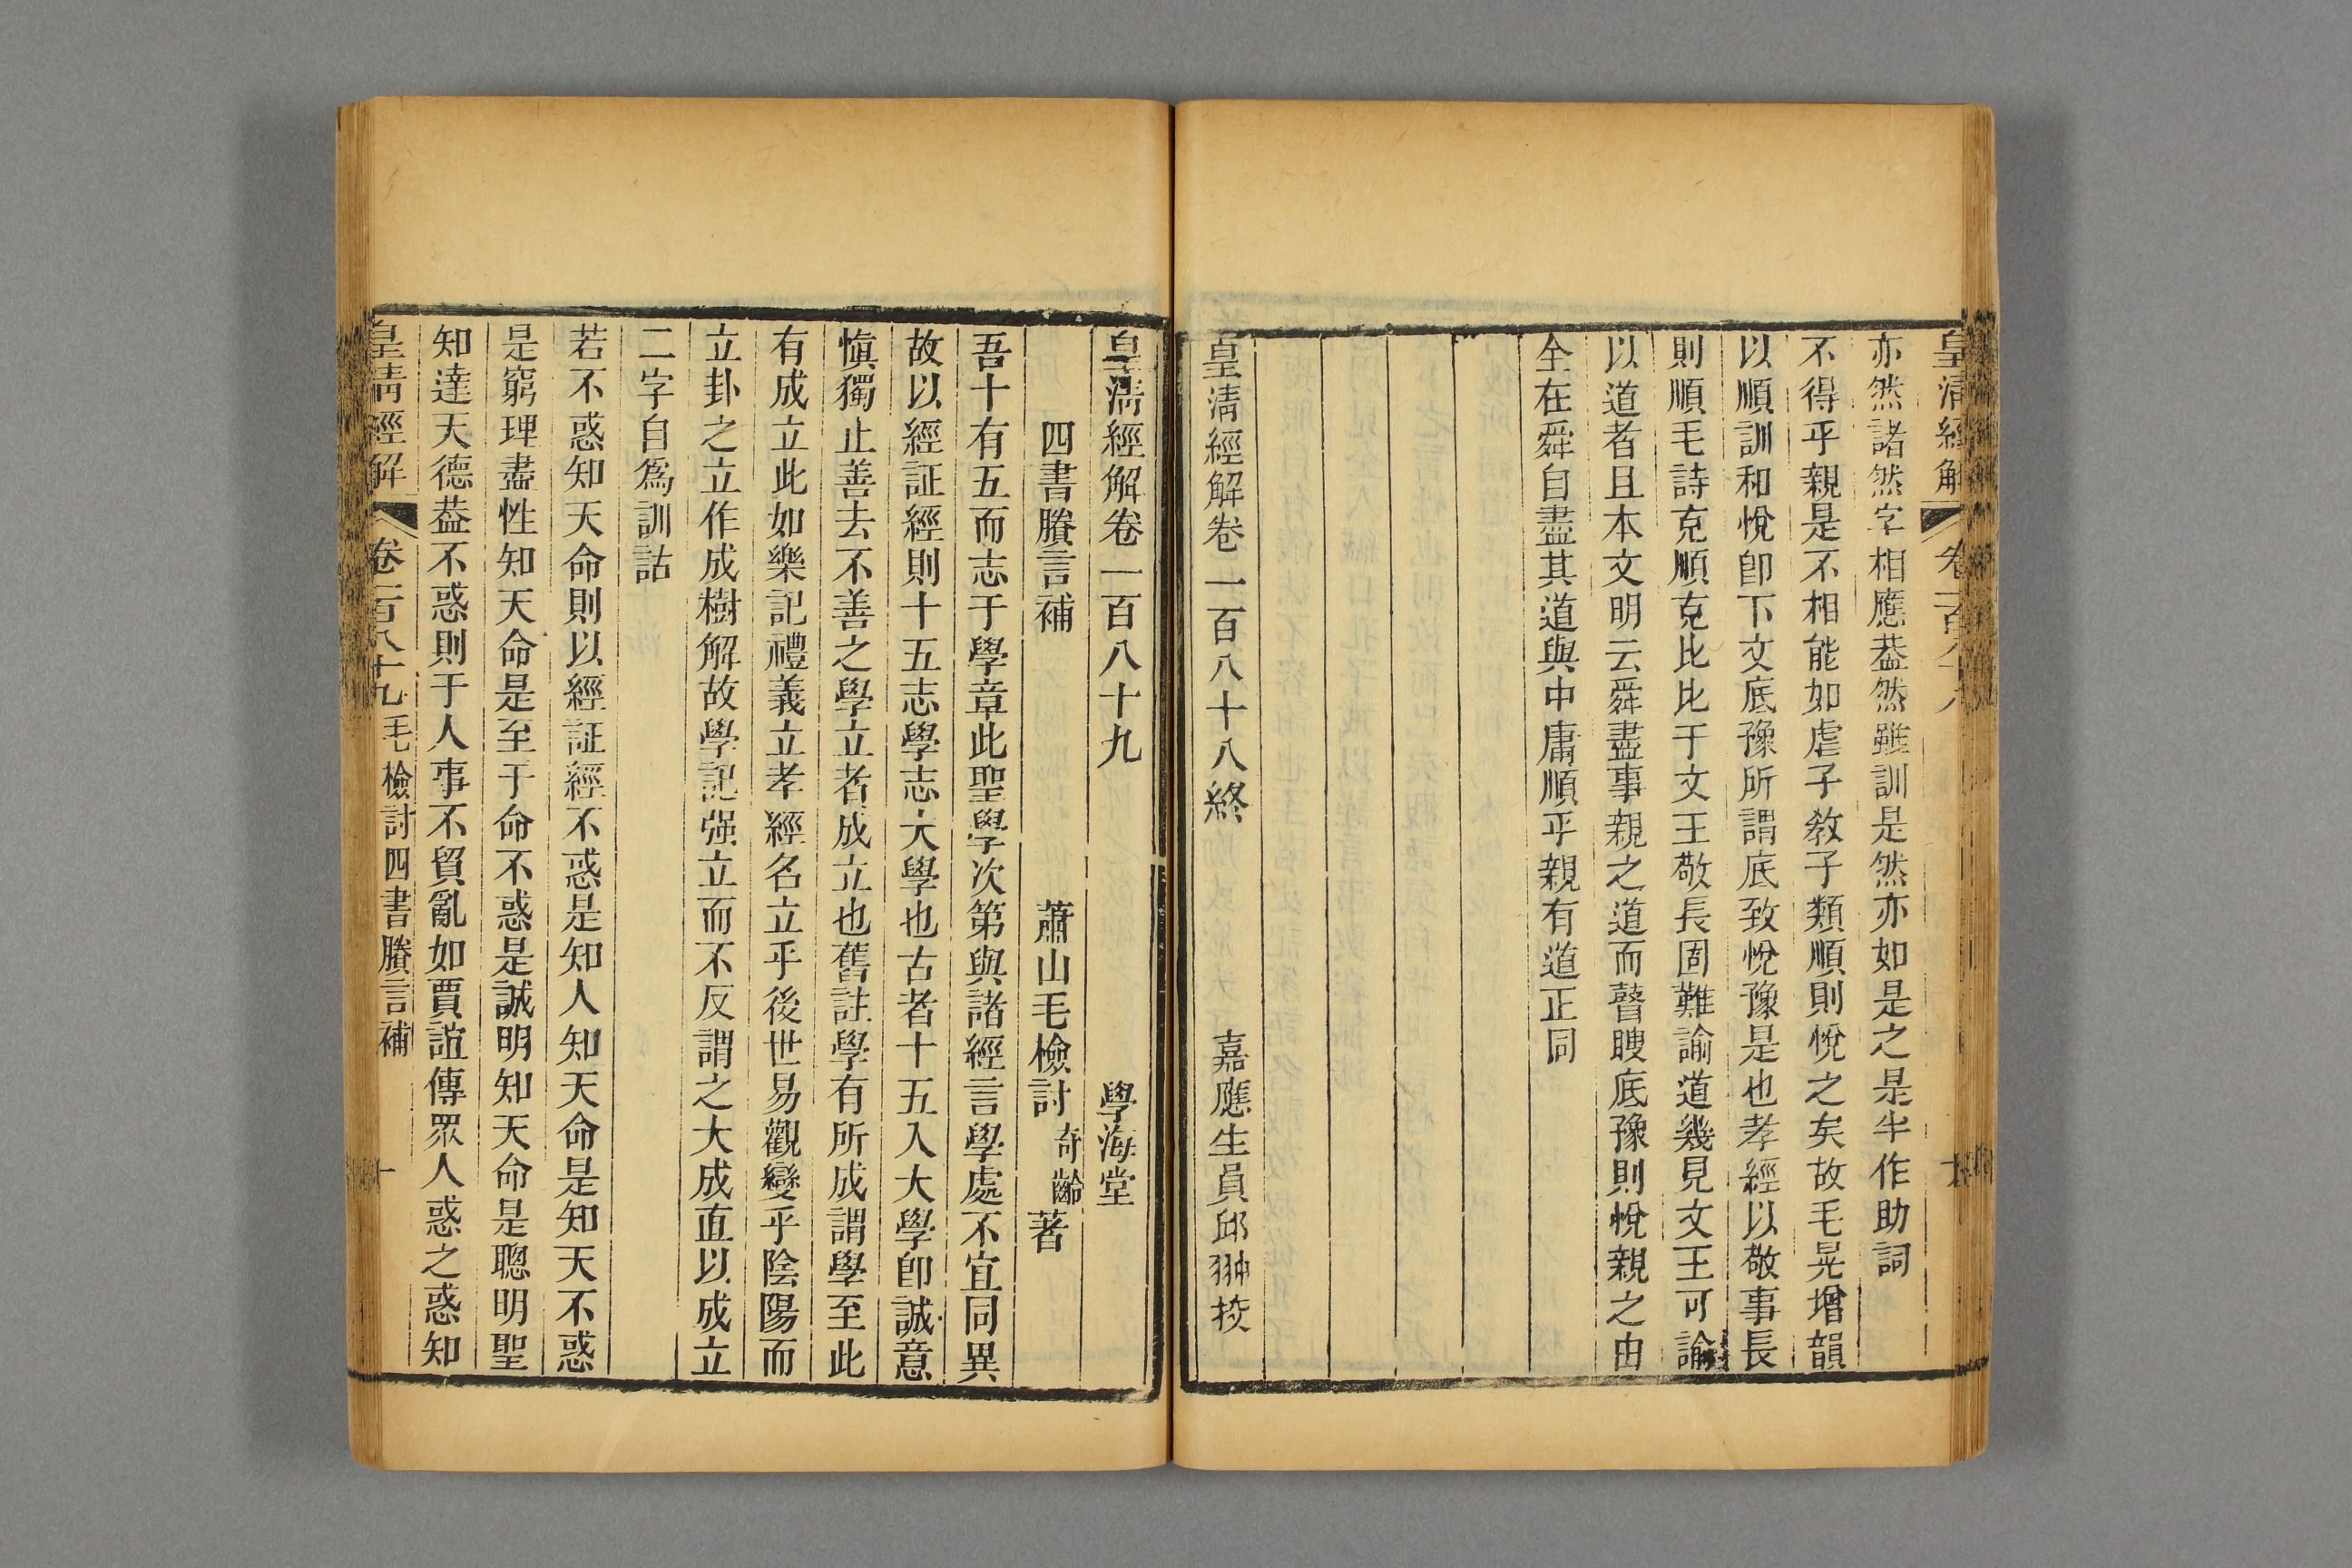 亦然諸然字相應葢然雖訓是然亦如是之是半作助詞
不得乎親是不相能如虐子教子類順則悅之矣故毛晃增韻
以順訓和悅卽下文底豫所謂底致悅豫是也孝經以敬事長
則順毛詩克順克比比于文王敬長固難諭道幾見文王可諭
以道者且本文明云舜盡事親之道而瞽瞍底豫則悅親之由
全在舜自盡其道與中庸順乎親有道正同
皇淸經解卷一百八十八終 嘉應生員邱翀挍
皇淸經解卷一百八十九 學海堂
四書賸言補 蕭山毛檢討奇齡著
吾十有五而志于學章此聖學次第與諸經言學處不宜同異
故以經証經則十五志學志大學也古者十五入大學卽誠意
愼獨止善去不善之學立者成立也舊註學有所成謂學至此
有成立此如樂記禮義立孝經名立乎後世易觀變乎陰陽而
立卦之立立作成樹解故學記强立而不反謂之大成直以成立
二字自爲訓詁
若不惑知天命則以經証經不惑是知人知天命是知天不惑
是窮理盡性知天命是至于命不惑是誠明知天命是聰明聖
知達天德葢不惑則于人事不貿亂如賈誼傳眾人惑之惑知
皇淸經解 卷一百八十九 毛檢討四書賸言補 一